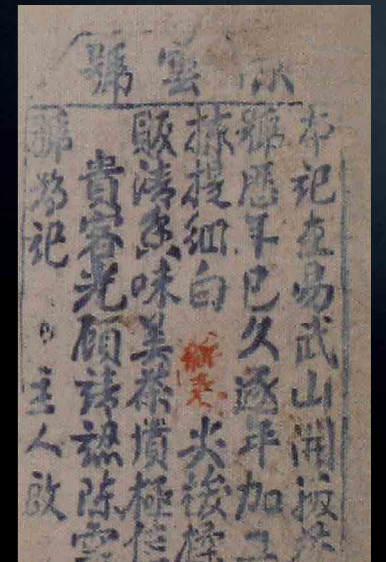 陳雲號
本記在易武山開張
號歷年已久逐年加工
揀提細白 尖後
販清香味美茶慣極
貴客光顧請認陳雲
號為記
主人啟